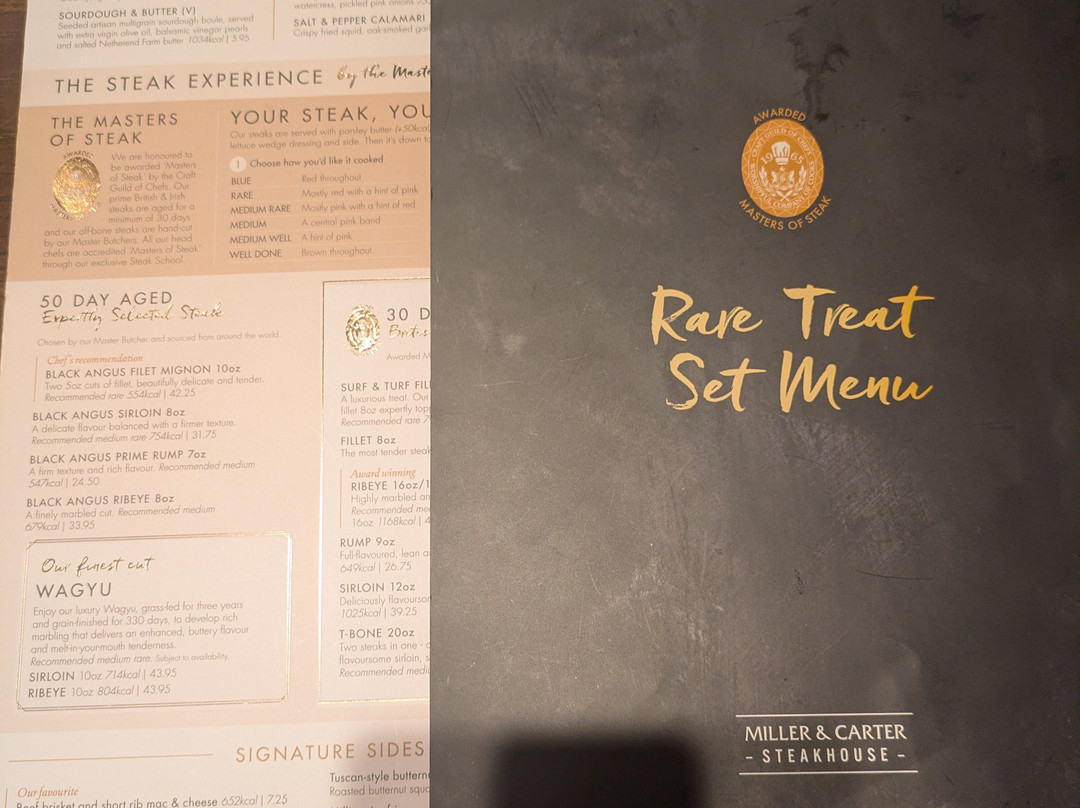 SOURDOUGH & BUTTER (V)
Seeded artisan multigrain sourdough boule, served
with extra virgin olive oil, balsamic vinegar pearls
and salted Netherend Farm butter 1034kcal | 5.95
watercress, pickled pink onions
SALT & PEPPER CALAMARI
Crispy fried squid, oak-smoked gar
THE STEAK EXPERIENCE by the Maste
THE MASTERS
OF STEAK
AWARDED
We are honoured to
be awarded 'Masters
of Steak' by the Craft
Guild of Chefs. Our
prime British & Irish
steaks are aged for a
minimum of 30 days
and our off-bone steaks are hand-cut
by our Master Butchers. All our head
chefs are accredited 'Masters of Steak'
through our exclusive Steak School.
YOUR STEAK, YOU
Our steaks are served with parsley butter (+50kcal
lettuce wedge dressing and side. Then it's down to
1 Choose how you'd like it cooked
BLUE Red throughout
RARE Mostly red with a hint of pink
MEDIUM RARE Mostly pink with a hint of red
MEDIUM A central pink band
MEDIUM WELL A hint of pink
WELL DONE Brown throughout
50 DAY AGED
Expertly Selected Steaks
Chosen by our Master Butcher and sourced from around the world.
Chef's recommendation
BLACK ANGUS FILET MIGNON 10oz
Two 5oz cuts of fillet, beautifully delicate and tender.
Recommended rare 554kcal | 42.25
BLACK ANGUS SIRLOIN 8oz
A delicate flavour balanced with a firmer texture.
Recommended medium rare 754kcal | 31.75
BLACK ANGUS PRIME RUMP 7oz
A firm texture and rich flavour. Recommended medium
547kcal | 24.50
BLACK ANGUS RIBEYE 8oz
A finely marbled cut. Recommended medium
679kcal | 33.95
Our finest cut
WAGYU
Enjoy our luxury Wagyu, grass-fed for three years
and grain-finished for 330 days, to develop rich
marbling that delivers an enhanced, buttery flavour
and melt-in-your-mouth tenderness.
Recommended medium rare. Subject to availability.
SIRLOIN 10oz 714kcal | 43.95
RIBEYE 10oz 804kcal | 43.95
30 D
Britis
Awarded M
SURF & TURF FIL
A luxurious treat. Our
fillet 8oz expertly topp
Recommended rare 7
FILLET 8oz
The most tender steak
Award winning
RIBEYE 16oz/1
Highly marbled an
Recommended me
16oz 1168kcal | 4
RUMP 9oz
Full-flavoured, lean a
649kcal | 26.75
SIRLOIN 12oz
Deliciously flavoursom
1025kcal | 39.25
T-BONE 20oz
Two steaks in one - c
flavoursome sirloin, s
Recommended medi
SIGNATURE SIDES
Our favourite
Beef brisket and short rib mac & cheese 652kcal | 7.25
Tuscan-style buttern
Roasted butternut squa
AWARDED
CRAFT GUILD OF CHEFS
1965
MASTERS OF STEAK
Rare Treat
Set Menu
MILLER & CARTER
- STEAKHOUSE -